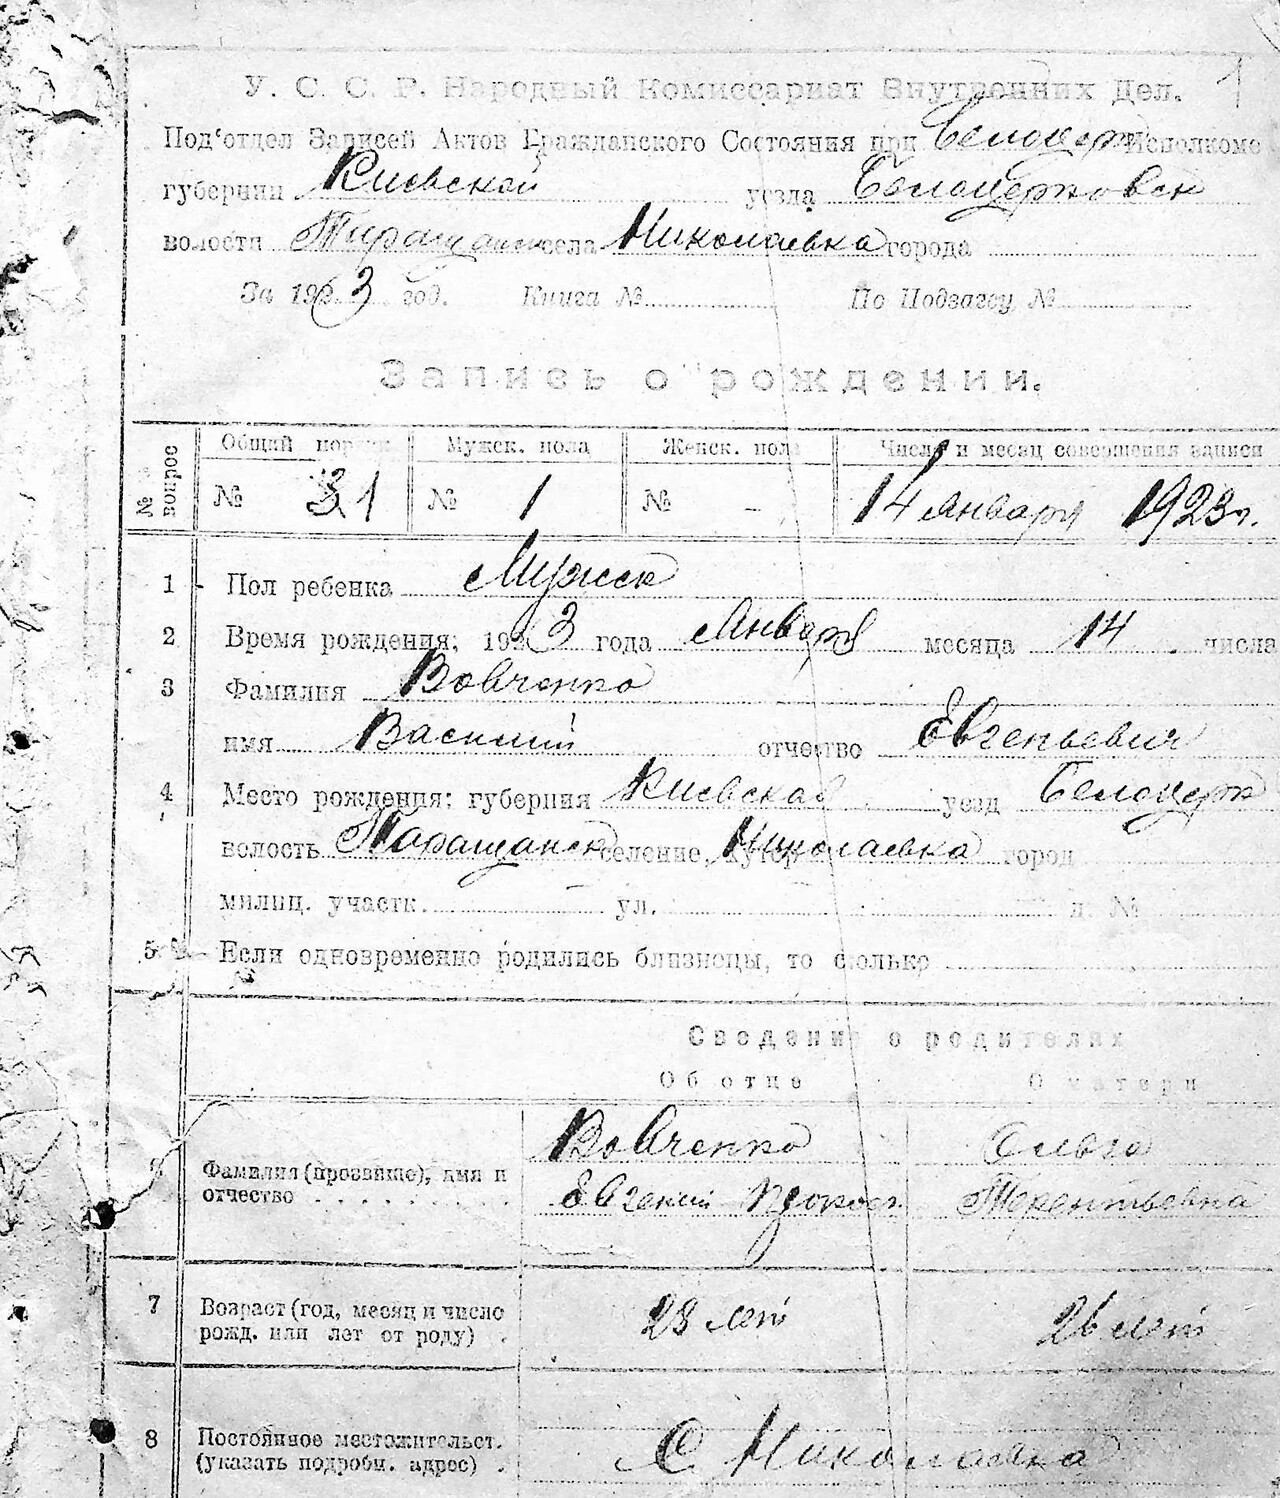 У. С. С. Р. Народный Комиссариат Внутренних Дел.
Под'отдел Записей Актов Гражданского Состояния при Белоцерк Исполкоме
губернии Киевской уезда Белоцерковск
волости Таращанск села Николаевка города
За 1923 год. Книга № По Подзагсу №
Запись о рождении.
№ вопрос Общий поряд. Мужск. пола Женск. пола Число и месяц совершения записи
№ 1 № 1 № - 14 января 1923 г.
1 Пол ребенка Мужск
2 Время рождения; 1923 года Января месяца 14 числа
3 Фамилия Вовченко
имя Василий отчество Евгеньевич
4 Место рождения: губерния Киевская уезд Белоцерк
волость Таращанск селение, хутор Николаевка город
милиц. участк. ул. д. №
5 Если одновременно родились близнецы, то сколько
Сведения о родителях
Об отце О матери
6 Фамилия (прозвище), имя и отчество Вовченко Евгений Ольга Терентьевна
7 Возраст (год, месяц и число рожд. или лет от роду) 28 лет 26 лет
8 Постоянное местожительст. (указать подробн. адрес) С. Николаевка